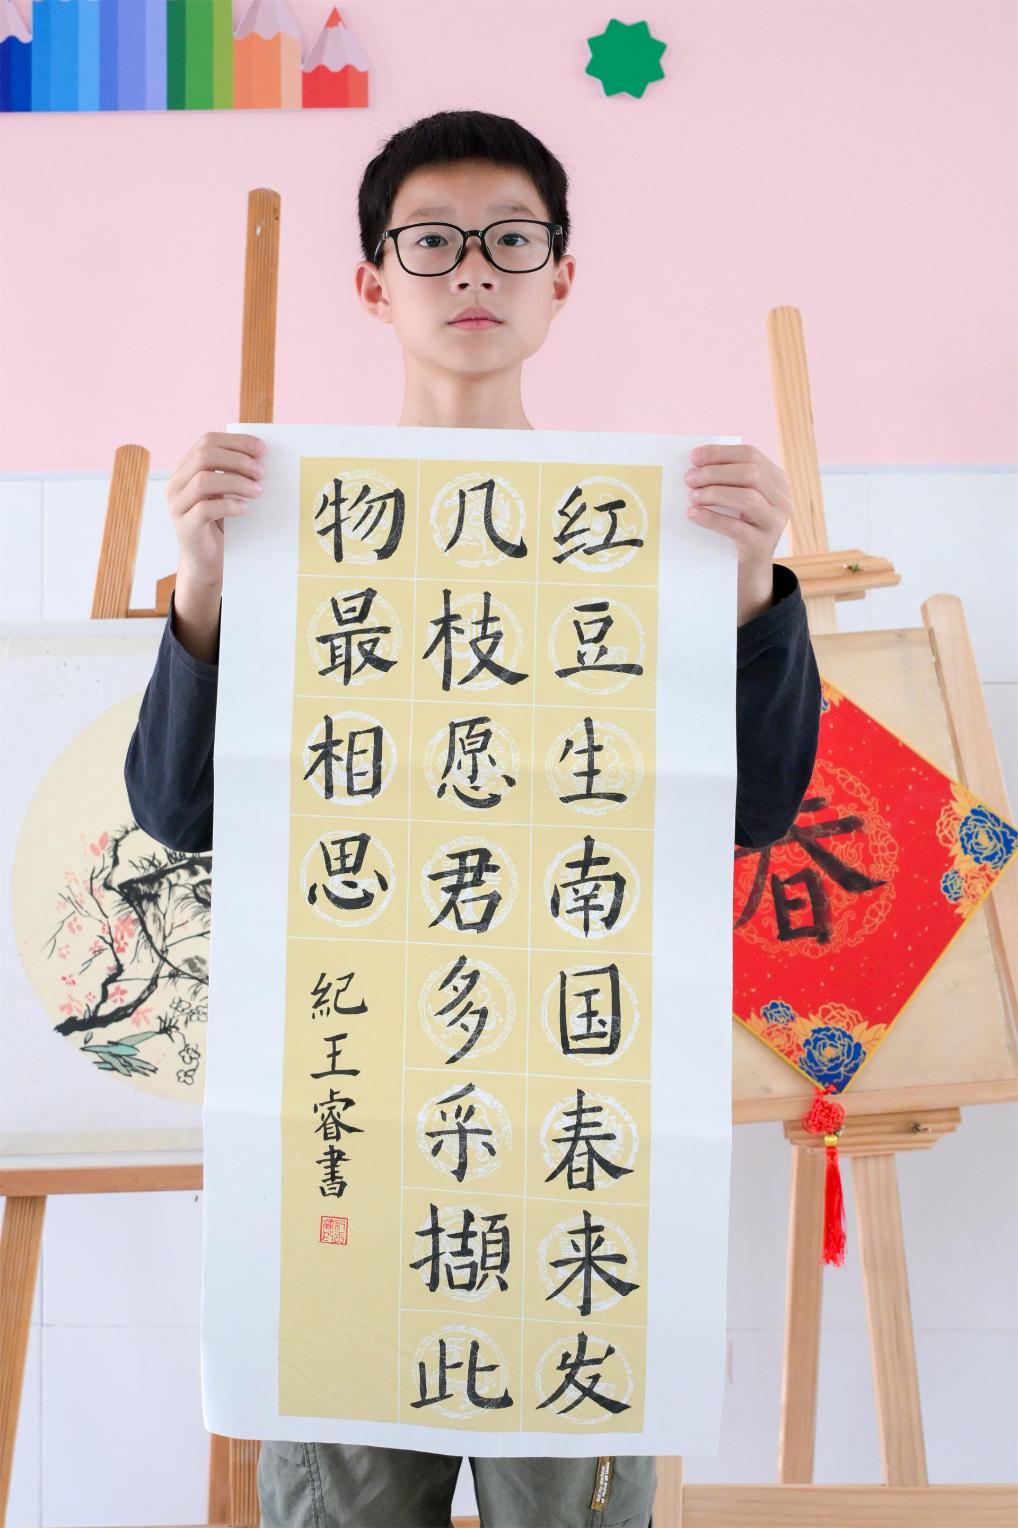 红豆生南国春来发
几枝愿君多采撷此
物最相思
紀王睿書
春